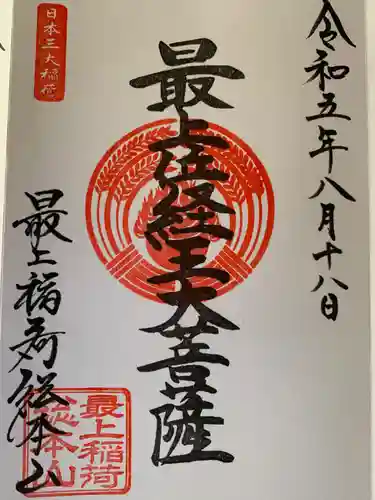 令和五年八月十八日
日本三大稲荷
最上位経王大菩薩
最上稲荷総本山
最上稲荷
総本山